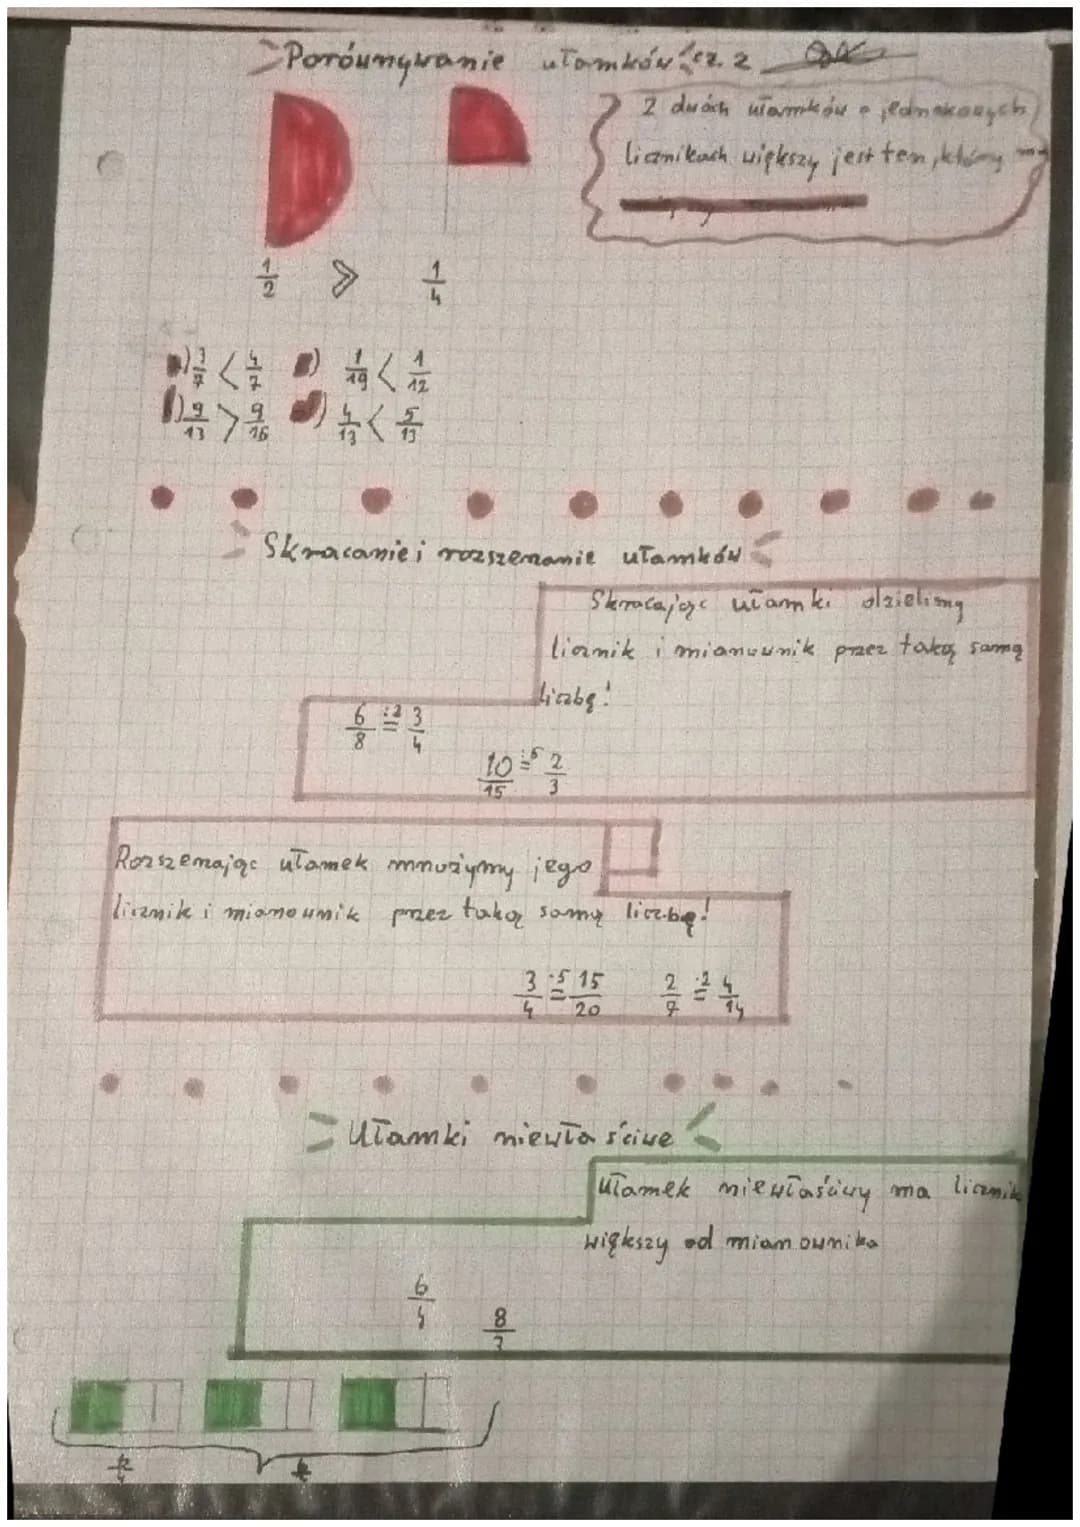 Porównywanie ułamków cz. 2
Z dwóch ułamków o jednakowych
licznikach większy jest ten, który ma
1/2 > 1/4
3/7 < 4/7 1/19 < 1/12
b) 9/13 > 9/16 4/13 < 5/13
Skracanie i rozszerzanie ułamków
Skracając ułamki dzielimy
licznik i mianownik przez taką samą
liczbę!
6/8 :2= 3/4
10/15 :5= 2/3
Rozszerzając ułamek mnożymy jego
licznik i mianownik przez taką samą liczbę!
3/4 ·5= 15/20 2/7 ·2= 4/14
Ułamki niewłaściwe
Ułamek niewłaściwy ma licznik
większy od mianownika
6/4
8/3